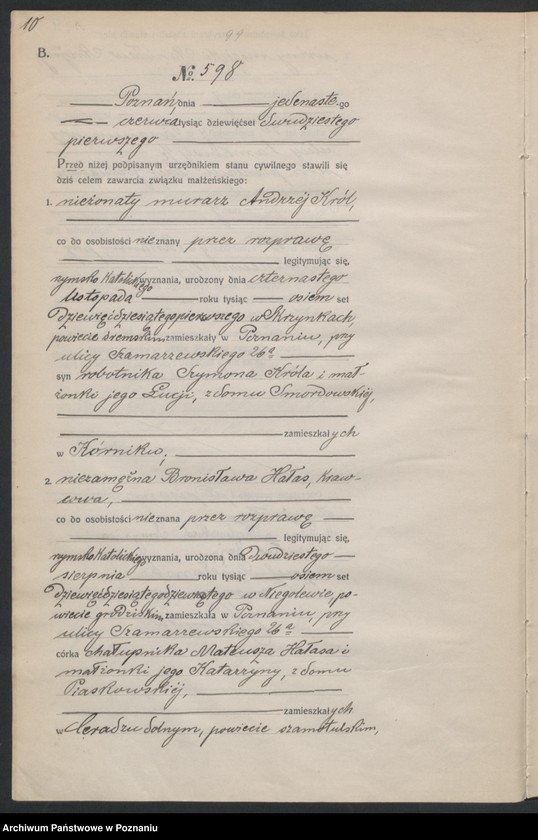 10
99
B.
No. 598
Poznań, dnia jedenaste-go
czerwca tysiąc dziewięćset dwudziestego
pierwszego
Przed niżej podpisanym urzędnikiem stanu cywilnego stawili się
dziś celem zawarcia związku małżeńskiego:
1. nieżonaty murarz Andrzej Król,
co do osobistości nieznany przez rozprawę
legitymując się,
rzymsko katolickiego wyznania, urodzony dnia czternastego
listopada roku tysiąc osiem set
dziewięćdziesiątego pierwszego w Skrzynkach,
powiecie śremskim zamieszkały w Poznaniu, przy
ulicy Szamarzewskiego 26a
syn robotnika Szymona Króla i mał-
żonki jego Łucji, z domu Smordowskiej,
zamieszkałych
w Kórniku;
2. niezamężna Bronisława Hałas, kraw-
cowa,
co do osobistości nieznana przez rozprawę
legitymując się,
rzymsko katolickiego wyznania, urodzona dnia dwudziestego
sierpnia roku tysiąc osiem set
dziewięćdziesiątego dziewiątego w Niegolewie, po-
wiecie grodziskim zamieszkała w Poznaniu, przy
ulicy Szamarzewskiego 26a
córka chałupnika Mateusza Hałasa i
małżonki jego Katarzyny, z domu
Piaskowskiej,
zamieszkałych
w Ceradzu dolnym, powiecie szamotulskim,
Archiwum Państwowe w Poznaniu